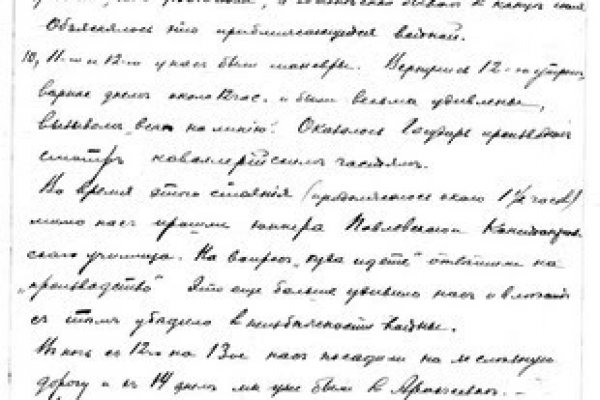 Объяснялось это приближающейся войной.
10, 11-го и 12-го у нас были маневры. Вернулись 12-го утром,
вернее днем около 12 час. и были весьма удивлены,
вызовом „всех на линию“. Оказалось Государь производил
смотр кавалерийским частям.
Во время этого стояния (продолжалось около 1½ часов)
мимо нас прошли юнкера Павловского
ского училища. На вопрос „куда идете“ ответили на
„производство“ Это еще больше удивило нас и
с тем убедило в неизбежности войны.
В ночь с 12го на 13ое нас посадили на железную
дорогу и в 14 днем мы уже были в